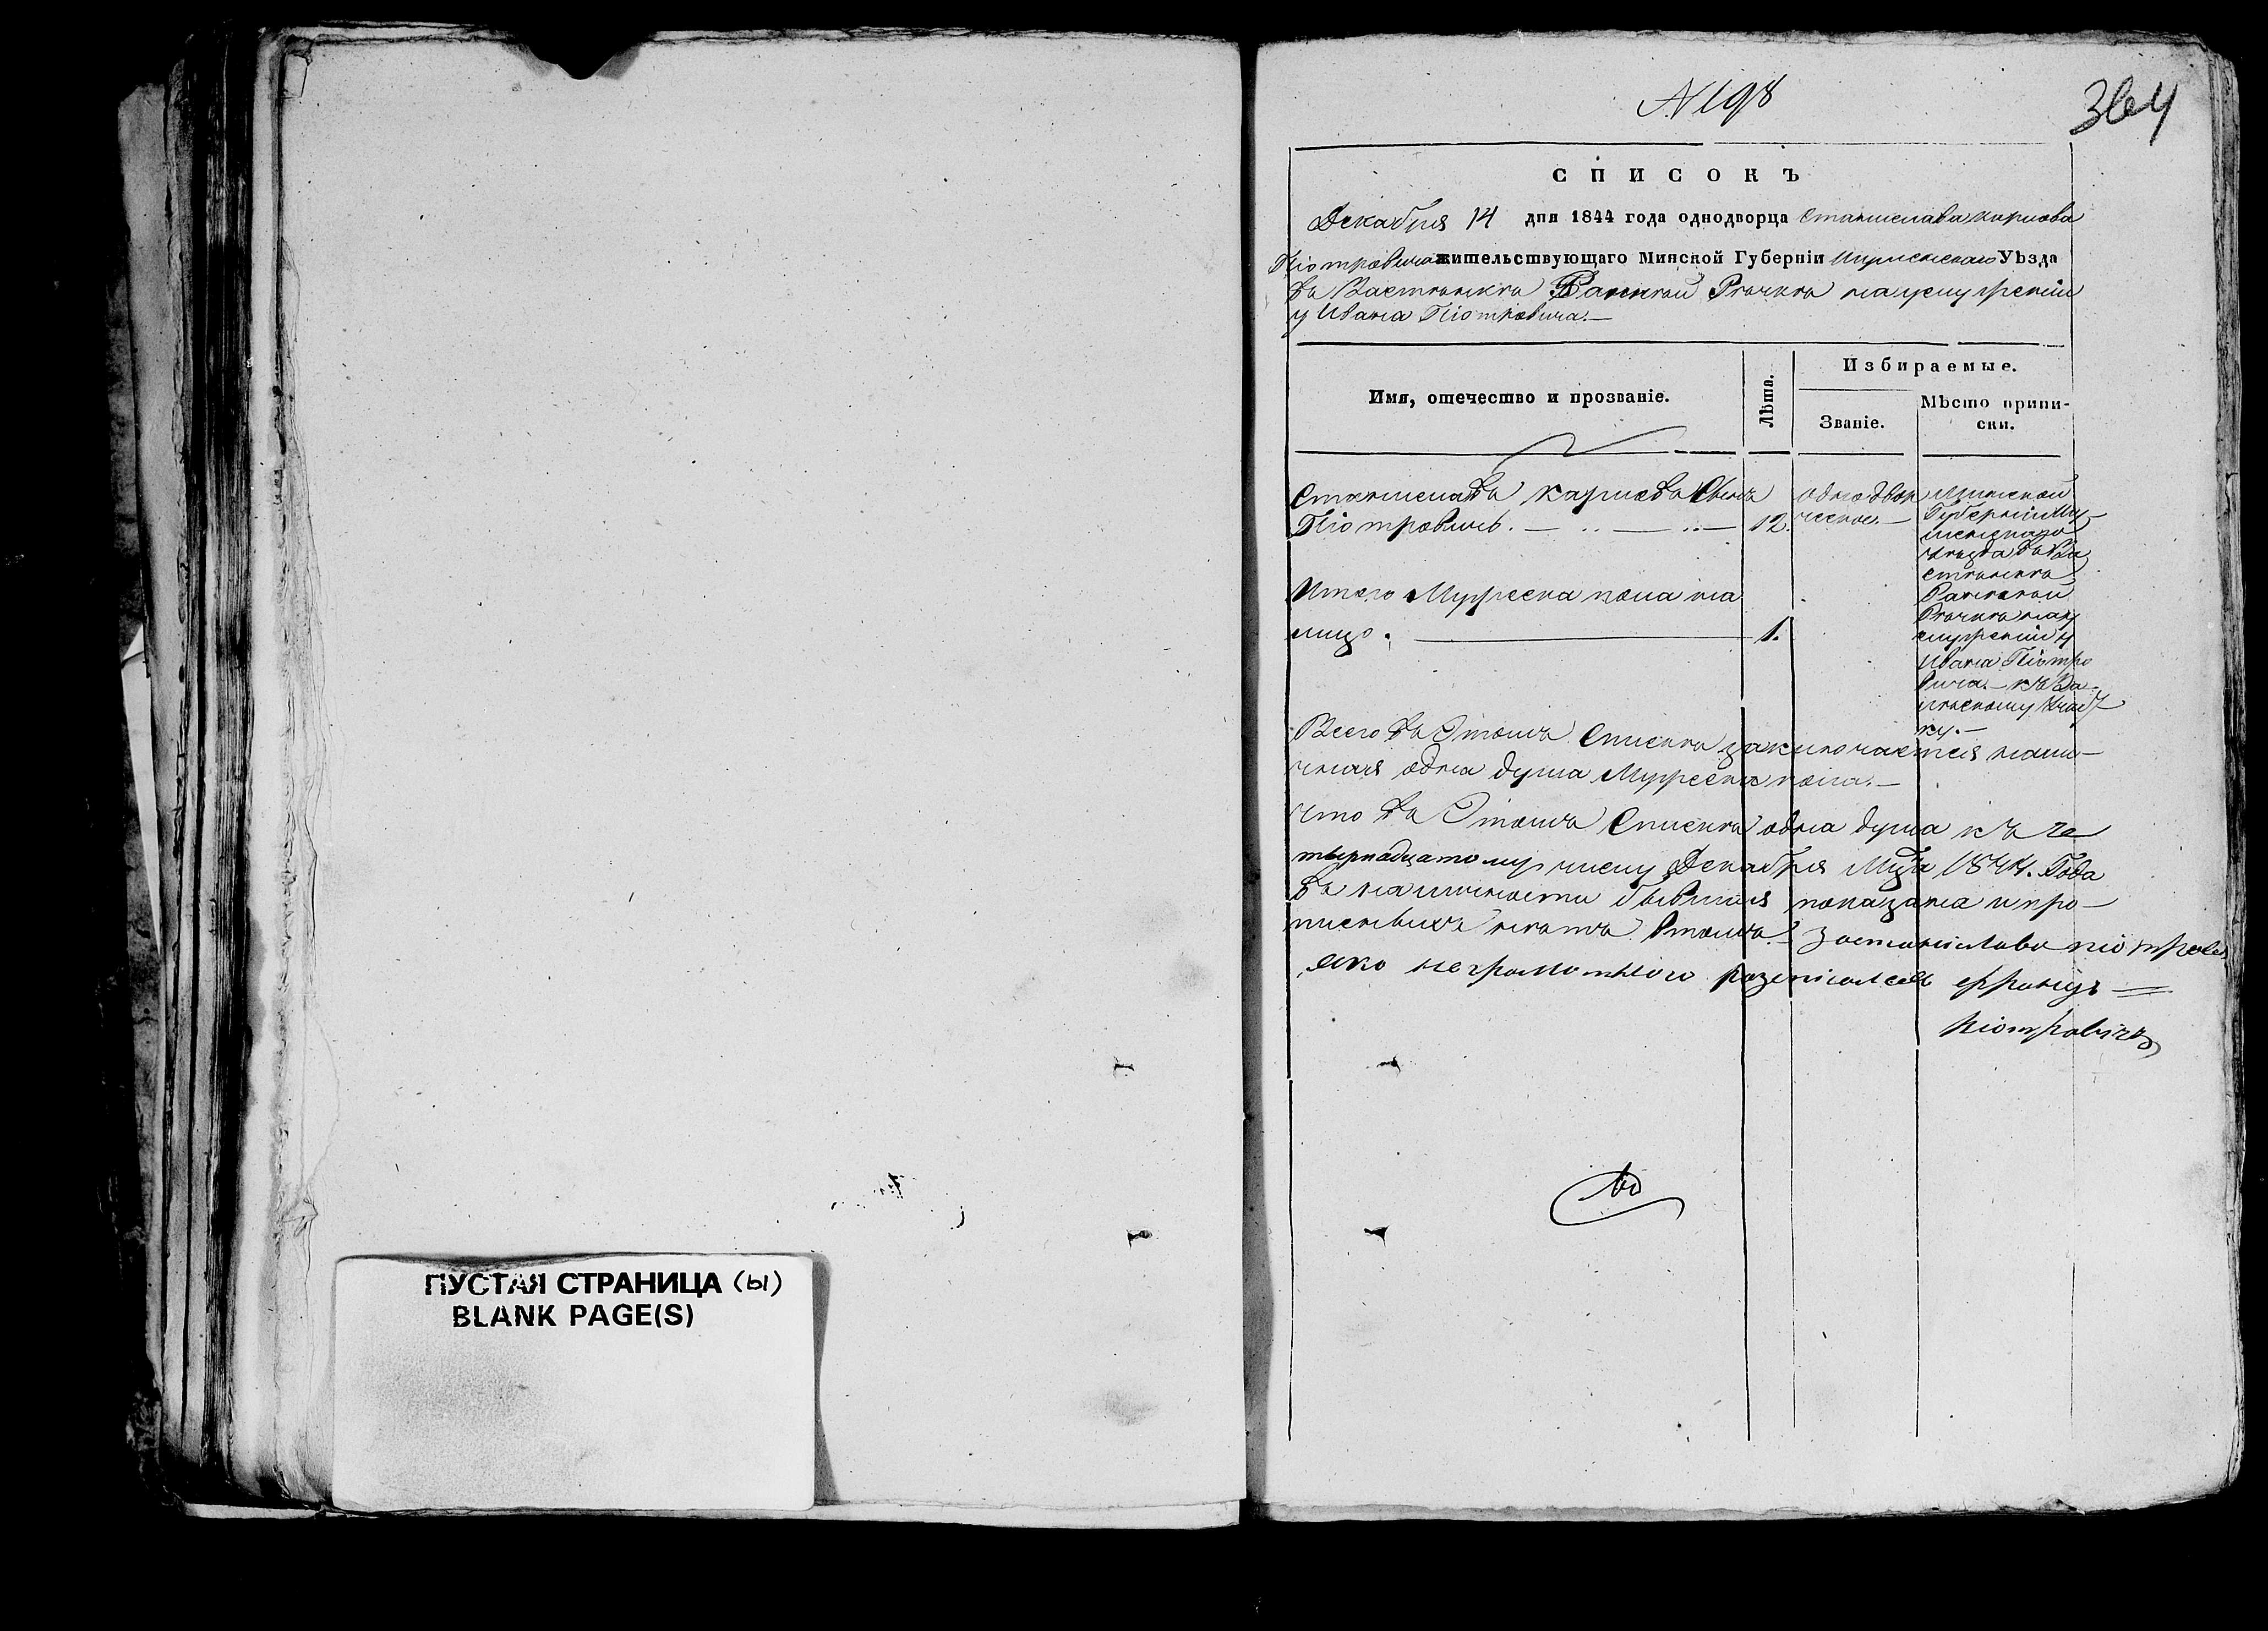 ПУСТАЯ СТРАНИЦА (ы)
BLANK PAGE(S)
N 198
364
СПИСОКЪ
Декабря 14 дня 1844 года однодворца Станислава Карлова
Піотровича жительствующаго Минской Губерніи Игуменскаго Уѣзда
въ
у Ивана Піотровича.—
Имя, отечество и прозваніе.
Лѣта.
Избираемые.
Званіе.
Мѣсто приписки.
Станиславъ Карловъ Сынъ
Піотровичь. — 12.
однодворческое.—
Минской
Губерніи Игу-
менскаго
уезда въ За
стѣнкѣ
у
Ивана Піотро
вича.— къ
Итого Мужеска пола на
лицо. — 1.
Всего въ Этомъ Спискѣ заключается налич-
ная одна душа Мужеска пола.—
Что въ Этомъ Спискѣ одна душа къ че
тырнадцатому числу Декабря Мца 1844. Года
въ наличности бывшая показана и про-
писныхъ нетъ Втомъ.— За Станіслава піотровіча
яко неграмотного розписался
піотровичъ